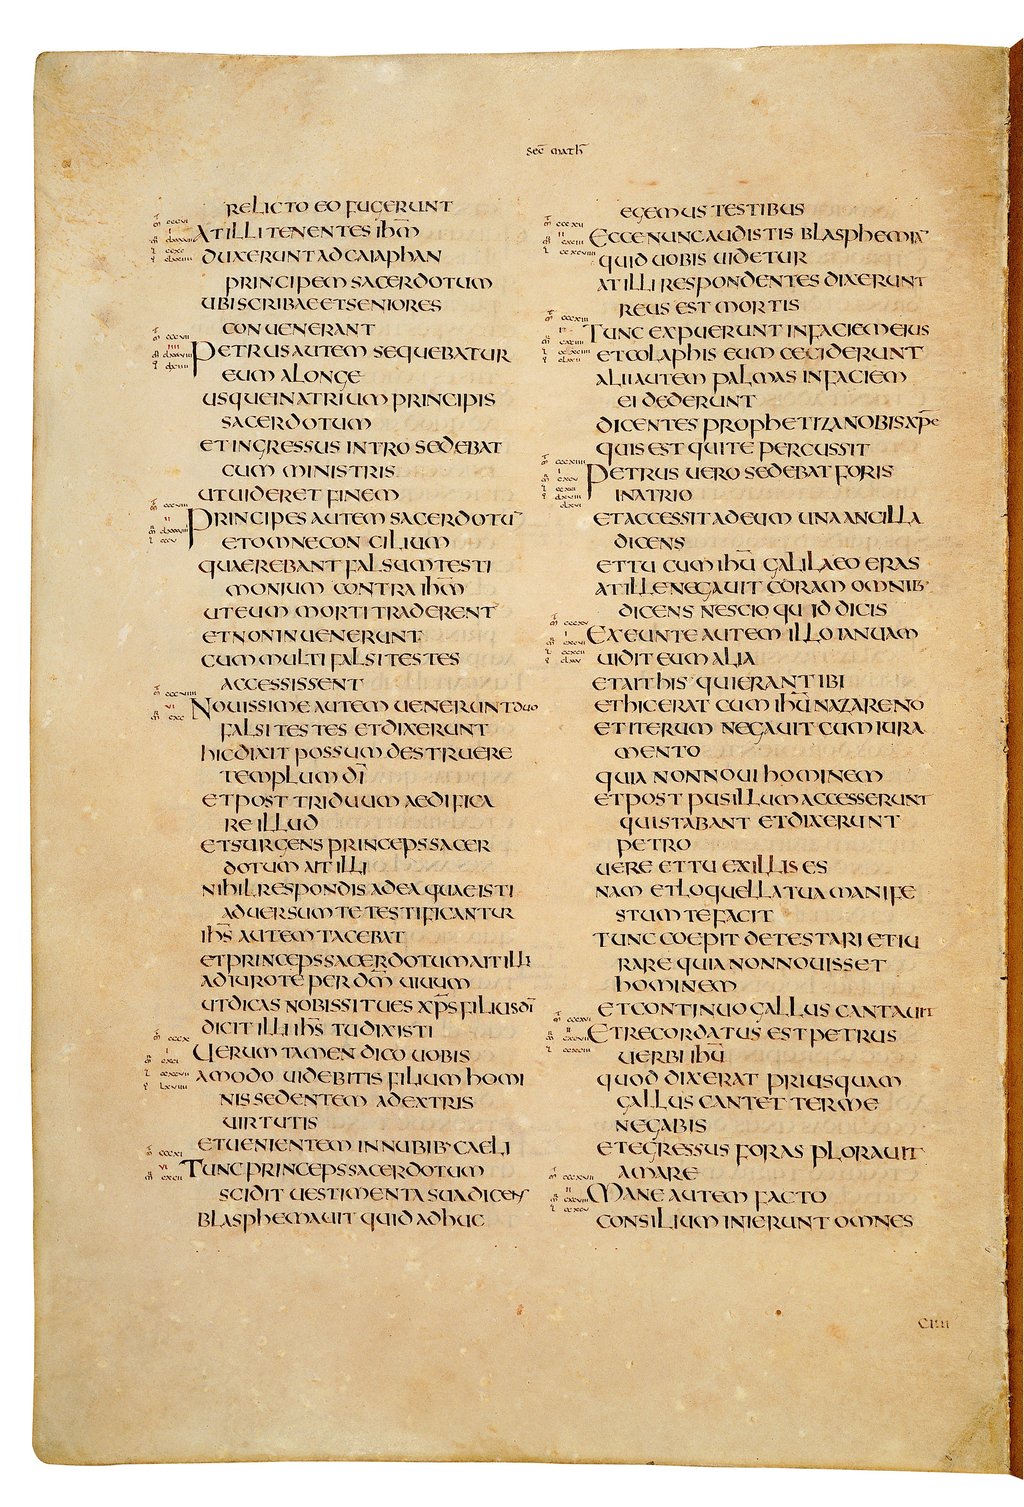 sec̄ math̄
RELICTO EO FUGERUNT
AT ILLI TENENTES IHM̄
DUXERUNT AD CAIAPHAN
PRINCIPEM SACERDOTUM
UBI SCRIBAE ET SENIORES
CONUENERANT
PETRUS AUTEM SEQUEBATUR
EUM A LONGE
USQUE IN ATRIUM PRINCIPIS
SACERDOTUM
ET INGRESSUS INTRO SEDEBAT
CUM MINISTRIS
UT UIDERET FINEM
PRINCIPES AUTEM SACERDOTŪ
ET OMNE CONCILIUM
QUAEREBANT FALSUM TESTI
MONIUM CONTRA IHM̄
UT EUM MORTI TRADERENT
ET NON INUENERUNT
CUM MULTI FALSI TESTES
ACCESSISSENT
NOUISSIME AUTEM UENERUNT DUO
FALSI TESTES ET DIXERUNT
HIC DIXIT POSSUM DESTRUERE
TEMPLUM DĪ
ET POST TRIDUUM AEDIFICA
RE ILLUD
ET SURGENS PRINCEPS SACER
DOTUM AIT ILLI
NIHIL RESPONDIS AD EA QUAE ISTI
ADUERSUM TE TESTIFICANTUR
IHS̄ AUTEM TACEBAT
ET PRINCEPS SACERDOTUM AIT ILLI
ADIURO TE PER DM̄ UIUUM
UT DICAS NOBIS SI TU ES XPS̄ FILIUS DĪ
DICIT ILLI IHS̄ TU DIXISTI
UERUM TAMEN DICO UOBIS
AMODO UIDEBITIS FILIUM HOMI
NIS SEDENTEM A DEXTRIS
UIRTUTIS
ET UENIENTEM IN NUBIB· CAELI
TUNC PRINCEPS SACERDOTUM
SCIDIT UESTIMENTA SUA DICENS
BLASPHEMAUIT QUID ADHUC
EGEMUS TESTIBUS
ECCE NUNC AUDISTIS BLASPHEMIĀ
QUID UOBIS UIDETUR
AT ILLI RESPONDENTES DIXERUNT
REUS EST MORTIS
TUNC EXPUERUNT IN FACIEM EIUS
ET COLAPHIS EUM CECIDERUNT
ALII AUTEM PALMAS IN FACIEM
EI DEDERUNT
DICENTES PROPHETIZA NOBIS XPE̅
QUIS EST QUI TE PERCUSSIT
PETRUS UERO SEDEBAT FORIS
IN ATRIO
ET ACCESSIT AD EUM UNA ANCILLA
DICENS
ET TU CUM IHŪ GALILAEO ERAS
AT ILLE NEGAUIT CORAM OMNIB·
DICENS NESCIO QUID DICIS
EXEUNTE AUTEM ILLO IANUAM
UIDIT EUM ALIA
ET AIT HIS QUI ERANT IBI
ET HIC ERAT CUM IHŪ NAZARENO
ET ITERUM NEGAUIT CUM IURA
MENTO
QUIA NON NOUI HOMINEM
ET POST PUSILLUM ACCESSERUNT
QUI STABANT ET DIXERUNT
PETRO
UERE ET TU EX ILLIS ES
NAM ET LOQUELLA TUA MANIFE
STUM TE FACIT
TUNC COEPIT DETESTARI ET IU
RARE QUIA NON NOUISSET
HOMINEM
ET CONTINUO GALLUS CANTAUIT
ET RECORDATUS EST PETRUS
UERBI IHŪ
QUOD DIXERAT PRIUSQUAM
GALLUS CANTET TER ME
NEGABIS
ET EGRESSUS FORAS PLORAUIT
AMARE
MANE AUTEM FACTO
CONSILIUM INIERUNT OMNES